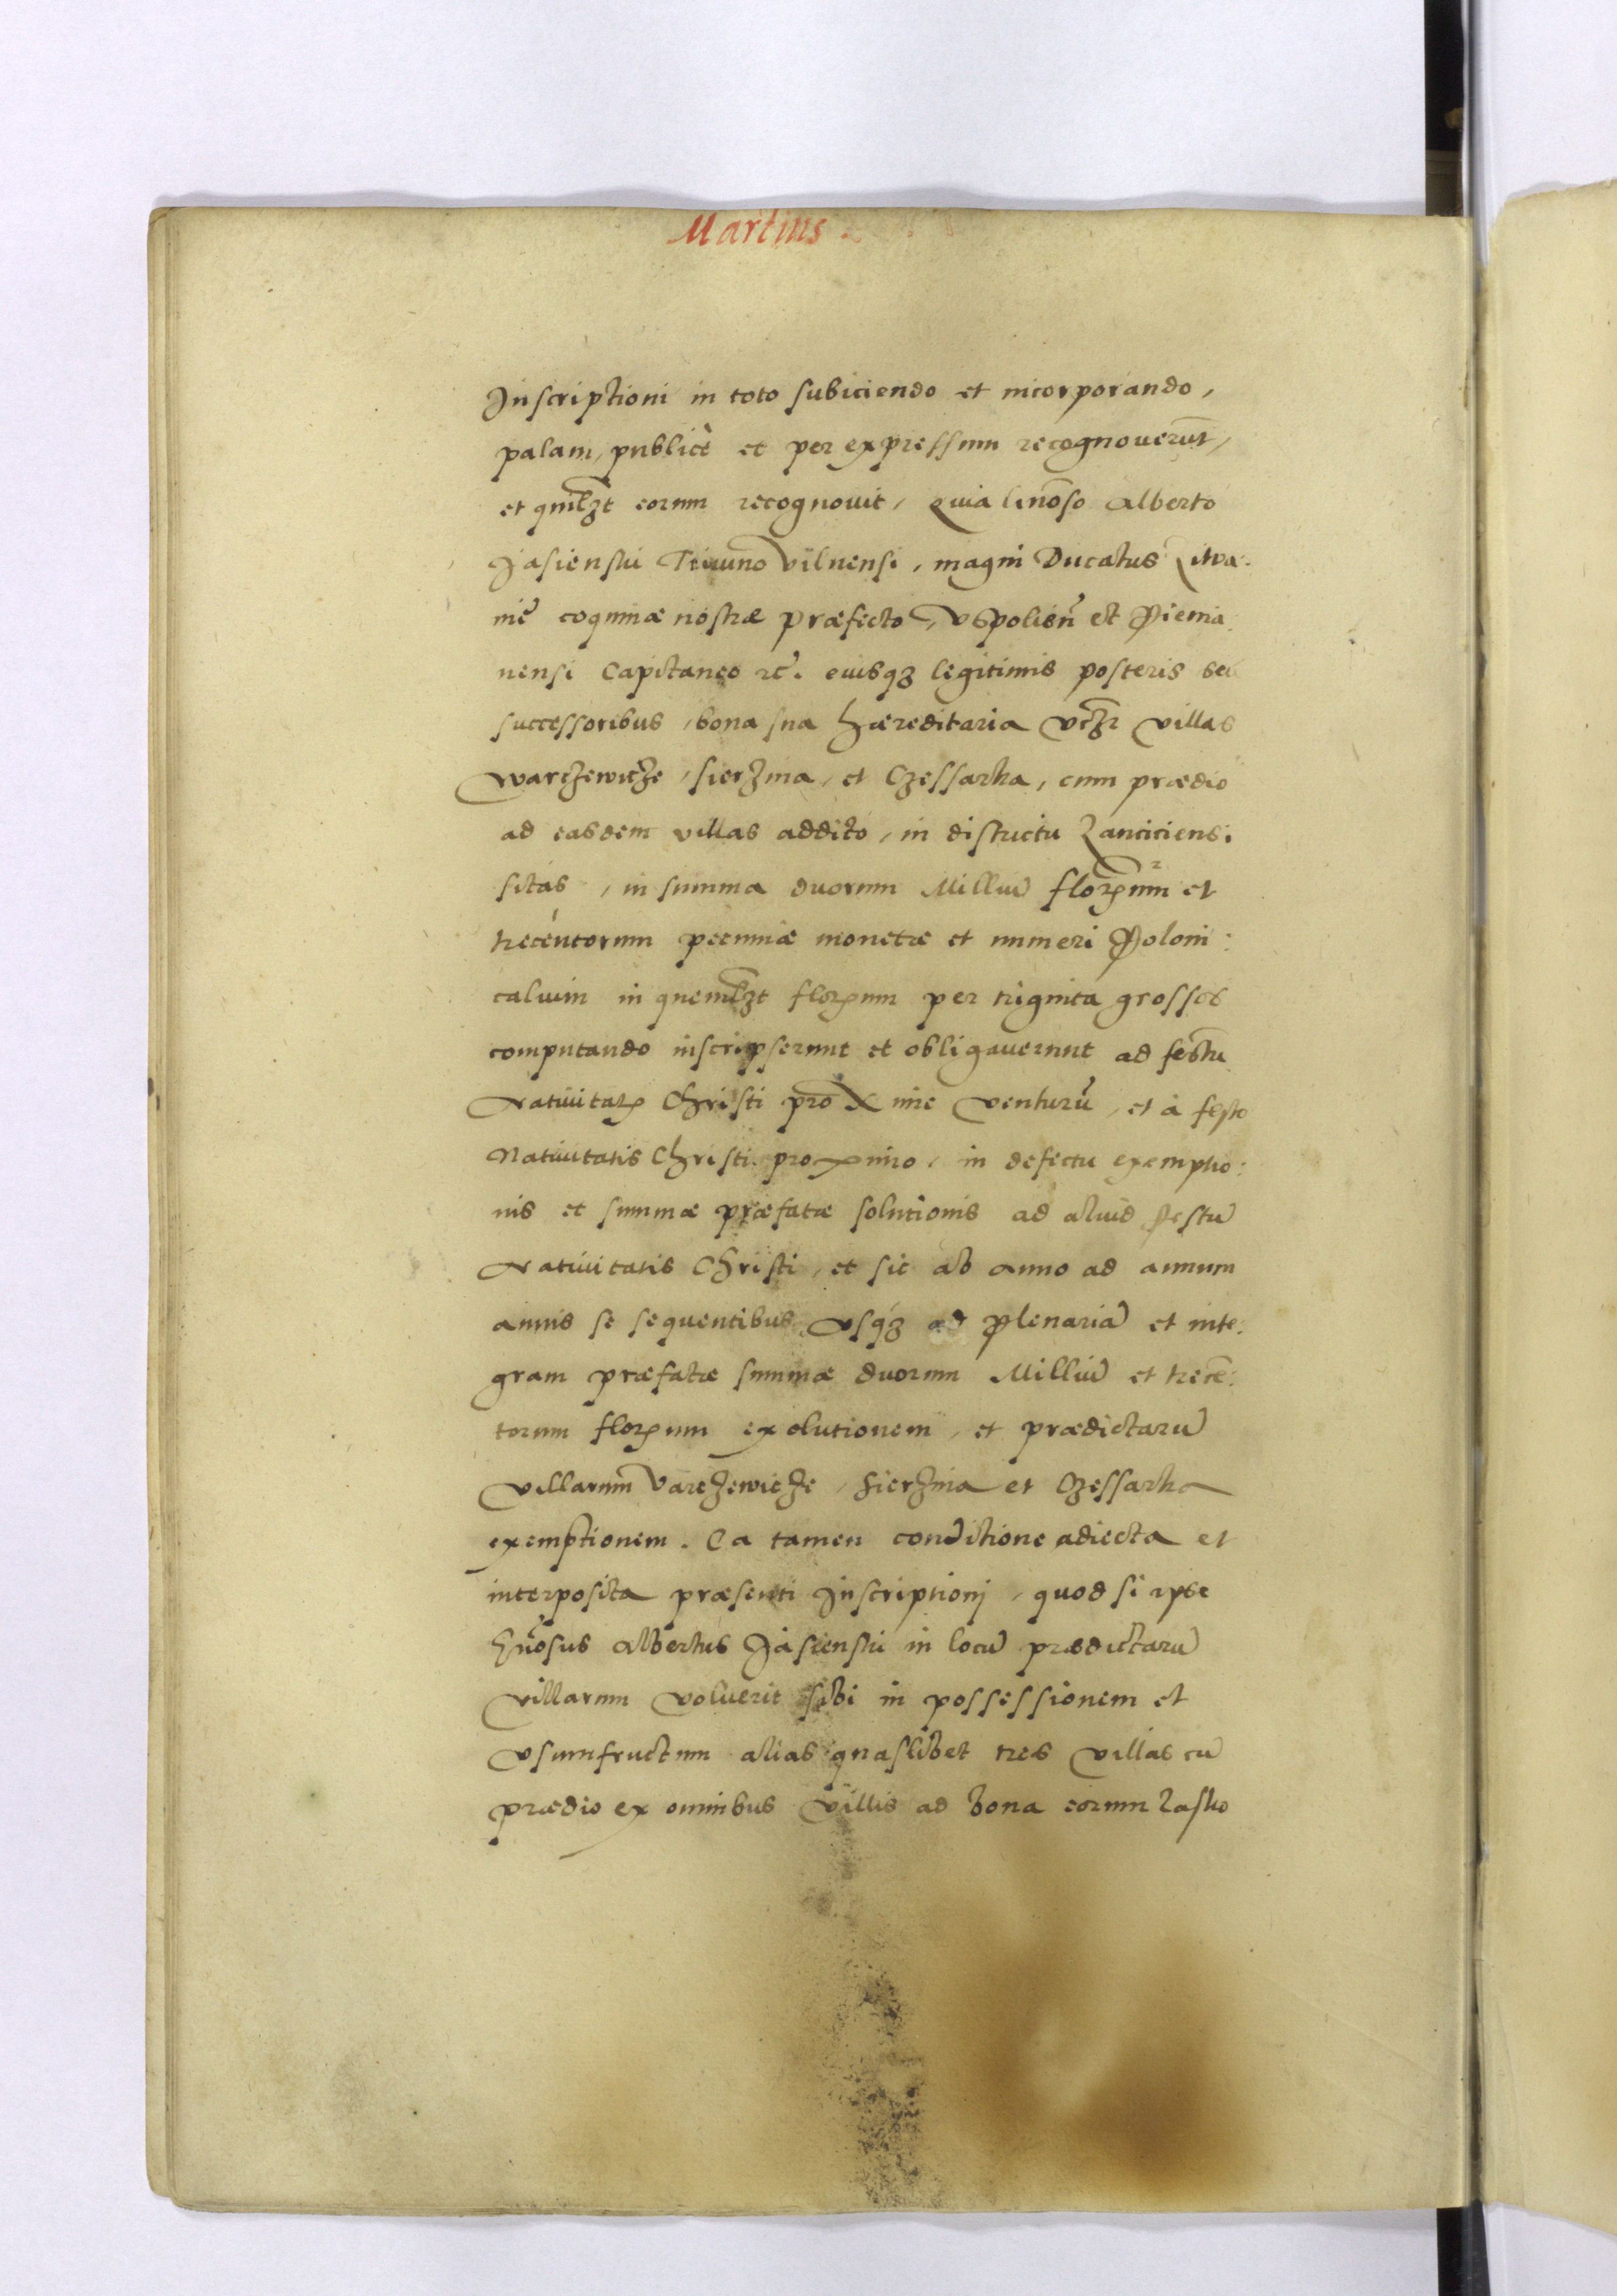 Martius
Inscriptioni in toto subiciendo et incorporando,
palam, publicè et per expressum recognouerūt,
et quilꝫt eorum recognouit, Quia Gn̄oso Alberto
Jasienski Tiwuno Vilnensi, magni Ducatus Litva:
niẽ coquinæ nostræ præfecto, Vspolien̄ et Pienia
nensi Capitaneo ꝛc̃. eiusqꝫ legitimis posteris seu
successoribus, bona sua hæreditaria vcꝫ villas
Warczewicze, Sierznia, et Czessarka, cum prædio
ad easdem villas addito, in districtu Lanciciensi
sitas, in summa duorum Milliũ floꝝenum et
trecentorum pecuniæ monetæ et numeri Poloni:
caluim in quemlꝫt floꝝenum per triginta grossos
computando inscripserunt et obligauerunt ad festū
Natiuitatꝭ Christi proxime venturũ, et à festo
Natiuitatis Christi proximo, in defectu exemptio:
nis et summæ præfatæ solutionis ad aliud festũ
Natiuitatis Christi, et sic ab anno ad annum
annis se sequentibus vsqꝫ ad Plenariã et inte:
gram præfatæ summæ duorum Milliũ et trecē:
torum floꝝenum exolutionem, et prædictarũ
villarum Varczewicze, Sierznia et Czessarka
exemptionem. Ea tamen conditione adiecta et
interposita præsenti Inscriptionj, quod si ipse
Gn̄osus Albertus Jasienski in locũ prædictarũ
villarum voluerit sibi in possessionem et
vsumfructum alias quaslibet tres villas cũ
prædio ex omnibus villis ad bona eorum Lasko